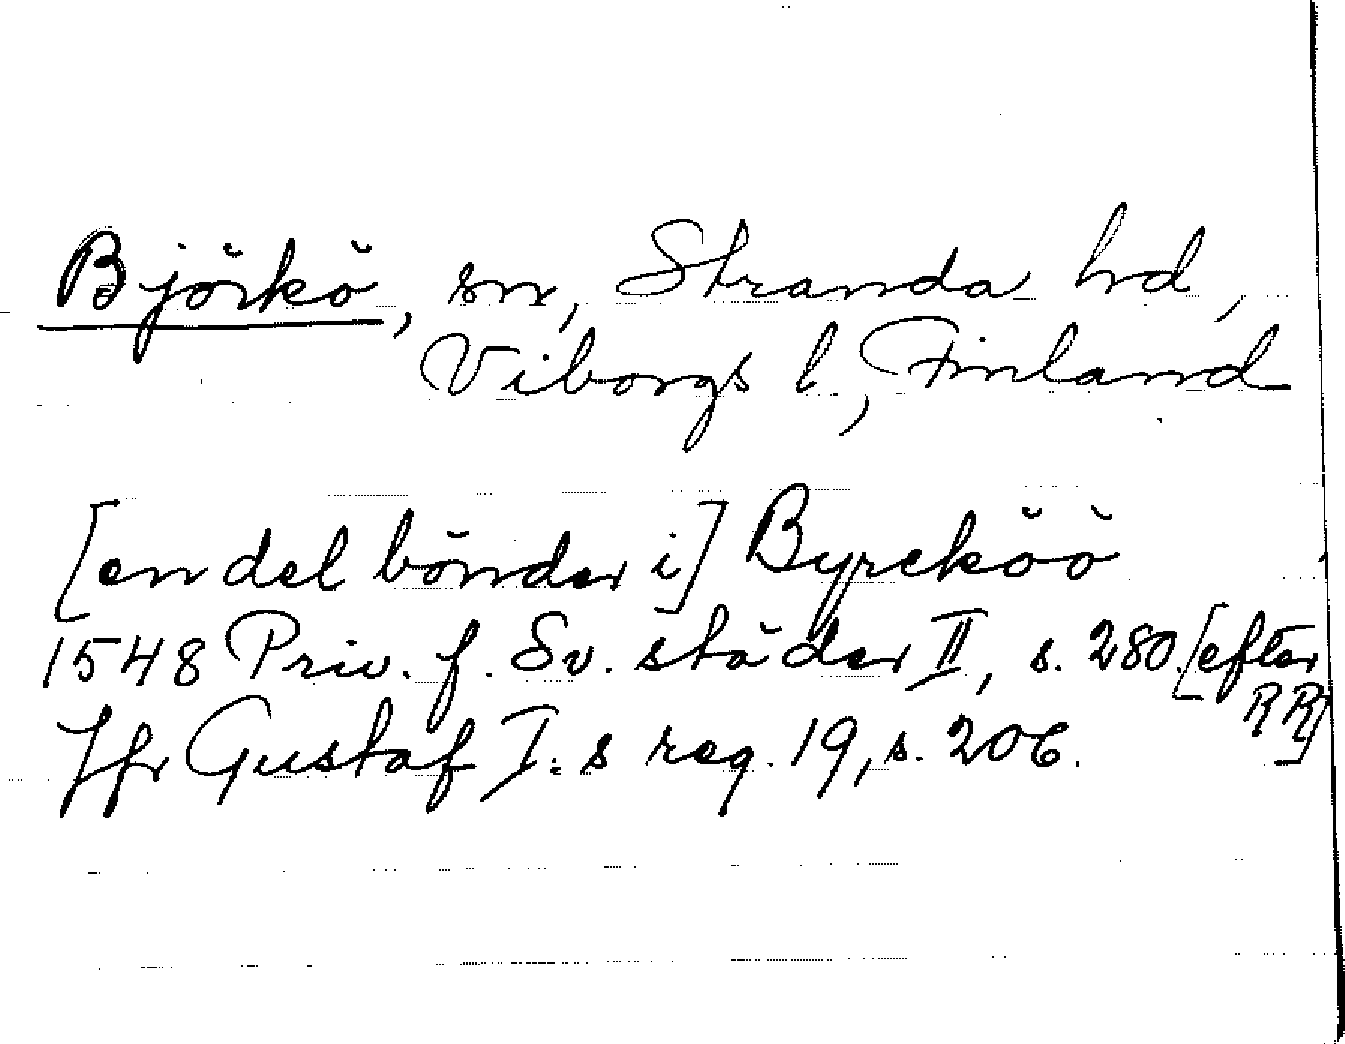 Björkö, sn, Stranda hd,
Viborgs l., Finland
[en del bönder i] Byreköö
1548 Priv. f. Sv. städer II, s. 280. [efter
RR]
Jfr Gustaf I:s reg. 19, s. 206.